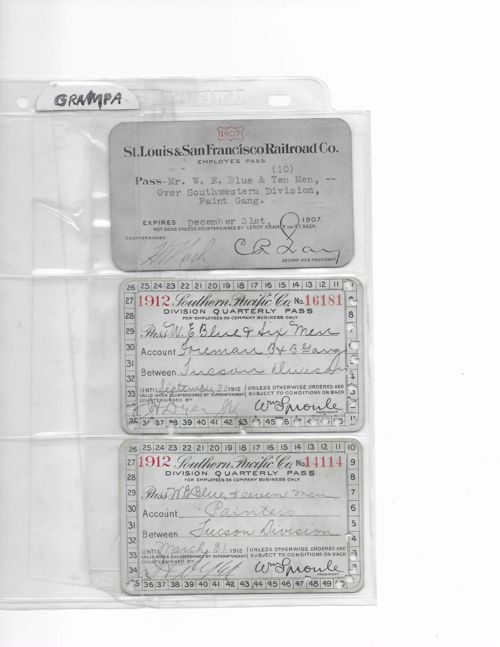 GRAMPA
1907
St. Louis & San Francisco Railroad Co.
EMPLOYES PASS.
(10)
Pass-Mr. W. E. Blue & Ten Men, --
Over Southwestern Division,
Paint Gang.
EXPIRES December 31st, 1907.
NOT GOOD UNLESS COUNTERSIGNED BY LEROY KRAMER OR H.I. NASH.
COUNTERSIGNED:
SECOND VICE-PRESIDENT
26 25 24 23 22 21 20 19 18 17 16 15 14 13 12 11
27 1912 Southern Pacific Co. No. 16181
28 DIVISION QUARTERLY PASS
FOR EMPLOYEES ON COMPANY BUSINESS ONLY
29 Pass W. E. Blue & Six Men
30 Account Foreman B & B Gang
31
32 Between Tucson Division
UNTIL September 30 1912 (UNLESS OTHERWISE ORDERED AND
33 VALID WHEN COUNTERSIGNED BY SUPERINTENDENT) SUBJECT TO CONDITIONS ON BACK
COUNTERSIGNED BY
Wm Sproule
PRESIDENT
35 36 37 38 39 40 41 42 43
26 25 24 23 22 21 20 19 18 17 16 15 14 13 12 11 10
27 1912 Southern Pacific Co. No. 14114 9
28 DIVISION QUARTERLY PASS 8
FOR EMPLOYEES ON COMPANY BUSINESS ONLY
29 Pass W E Blue & seven men 7
30 Account Painters
31
32 Between Tucson Division
UNTIL March 31 1912 (UNLESS OTHERWISE ORDERED AND
33 VALID WHEN COUNTERSIGNED BY SUPERINTENDENT) SUBJECT TO CONDITIONS ON BACK
34 COUNTERSIGNED BY
Wm Sproule
PRESIDENT
35 36 37 38 39 40 41 42 43 44 45 46 47 48 49